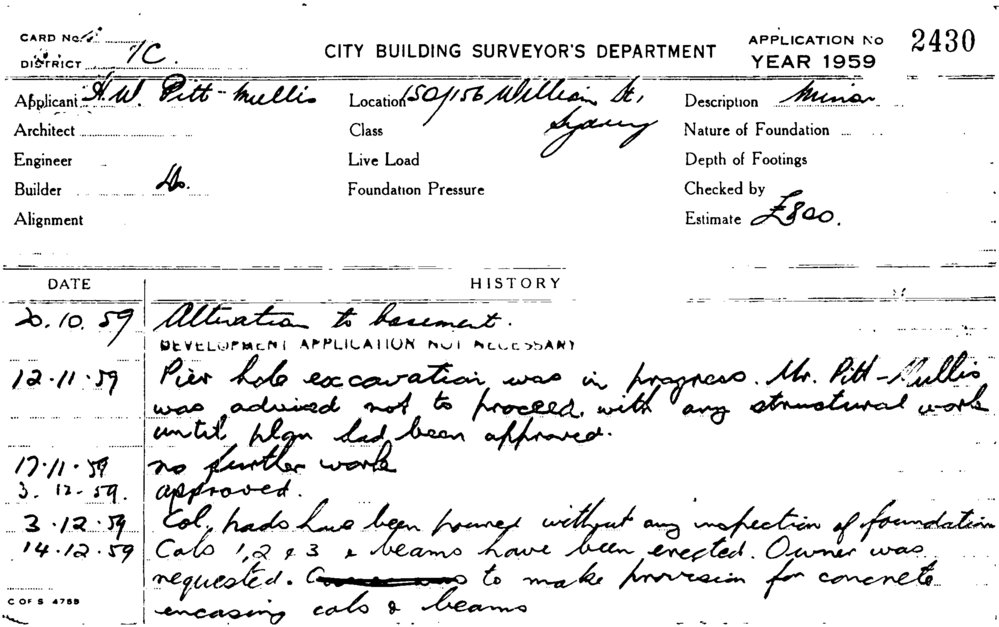 CARD No.
DISTRICT 7/C.
CITY BUILDING SURVEYOR'S DEPARTMENT
APPLICATION No 2430
YEAR 1959
Applicant H.W. Pitt-Mullis
Location 150/156 William St,
Sydney
Description Minor
Architect
Class
Nature of Foundation
Engineer
Live Load
Depth of Footings
Builder Do.
Foundation Pressure
Checked by
Alignment
Estimate £800.
DATE HISTORY
20.10.59 Alteration to basement.
DEVELOPMENT APPLICATION NOT NECESSARY
12.11.59 Pier hole excavation was in progress. Mr. Pitt-Mullis
was advised not to proceed with any structural work
until plan had been approved.
17.11.59 no further work
3.12.59. approved.
3.12.59 Col. pads have been poured without any inspection of foundation
14.12.59 Cols 1, 2 & 3 & beams have been erected. Owner was
requested. to make provision for concrete
encasing cols & beams
C OF S 4758